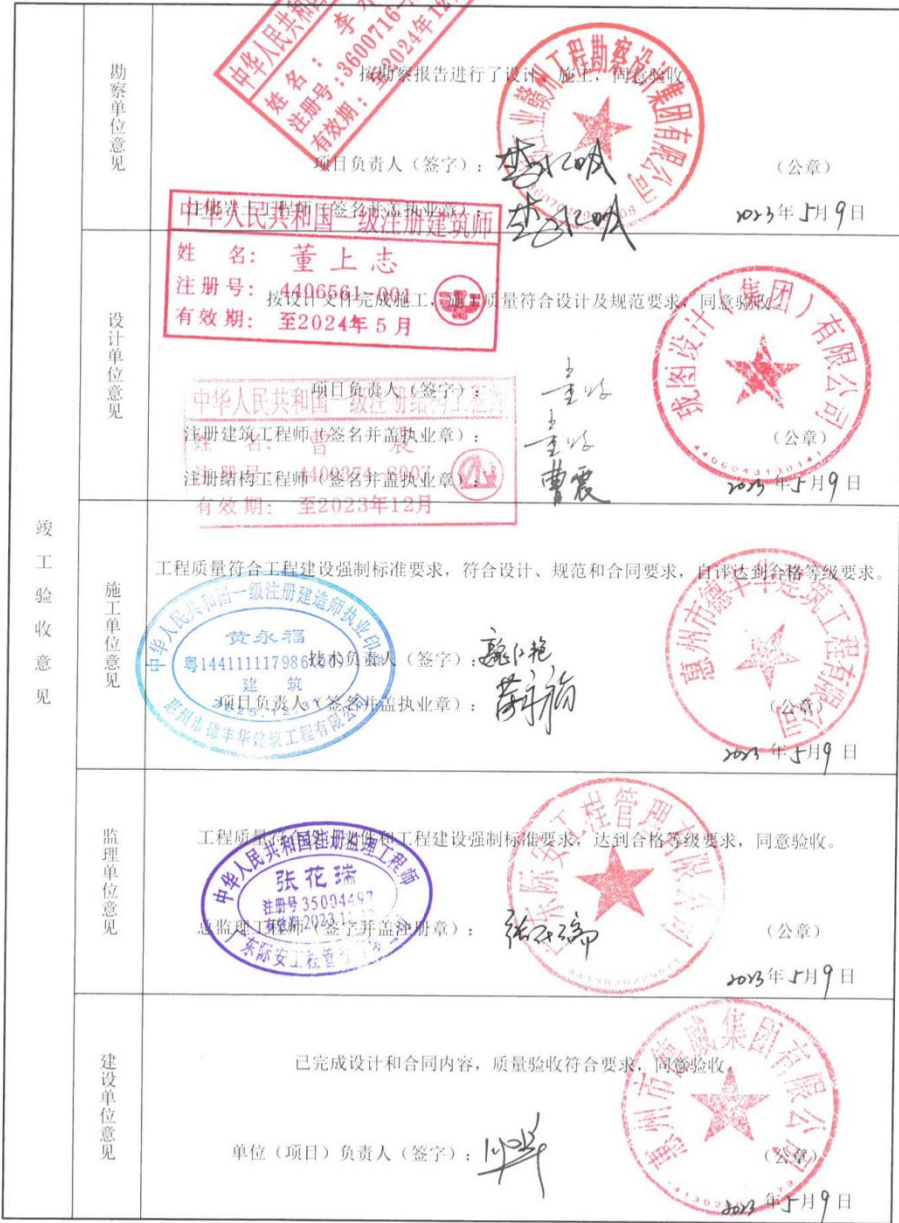 竣工验收意见
勘察单位意见
中华人民共和国
姓名：李
注册号：3600716-
有效期：至2024年12
按勘察报告进行了设计、施工，同意验收
赣州工程勘察设计集团有限公司
项目负责人（签字）：
（公章）
注册岩土工程师（签名并盖执业章）：
2023年5月9日
设计单位意见
中华人民共和国一级注册建筑师
姓 名：董上志
注册号：4406561-001
有效期：至2024年5月
按设计文件完成施工，施工质量符合设计及规范要求，同意验收
珑图设计（集团）有限公司
4406043130141
项目负责人（签字）：
中华人民共和国一级注册结构工程师
姓 名：曹 震
注册建筑工程师（签名并盖执业章）：
（公章）
注册结构工程师（签名并盖执业章）：曹震
有效期：至2023年12月
2023年5月9日
施工单位意见
工程质量符合工程建设强制标准要求，符合设计、规范和合同要求，自评达到合格等级要求。
中华人民共和国一级注册建造师执业印章
黄永福
建 筑
惠州市德丰华建筑工程有限公司
技术负责人（签字）：
项目负责人（签名并盖执业章）：黄永福
惠州市德丰华建筑工程有限公司
（公章）
2023年5月9日
监理单位意见
工程质量符合设计文件和工程建设强制标准要求，达到合格等级要求，同意验收。
中华人民共和国注册监理工程师
张花瑞
注册号35004497
有效期2023.1
广东际安工程管理有限公司
总监理工程师（签字并盖注册章）：张花瑞
广东际安工程管理有限公司
（公章）
2023年5月9日
建设单位意见
已完成设计和合同内容，质量验收符合要求，同意验收。
单位（项目）负责人（签字）：
惠州市德威集团有限公司
（公章）
2023年5月9日